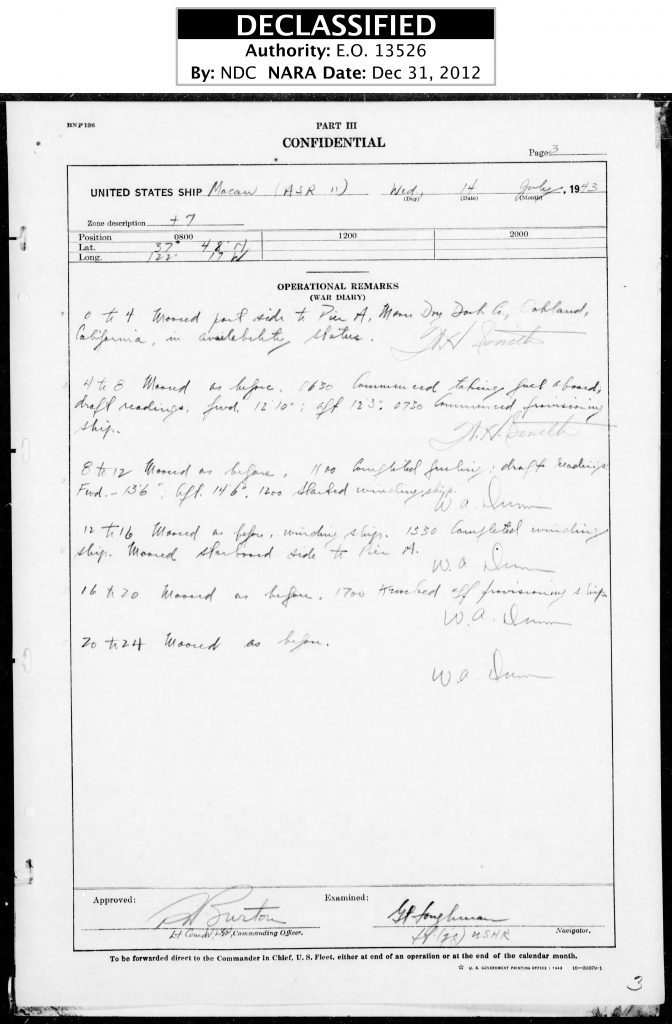 DECLASSIFIED
Authority: E.O. 13526
By: NDC NARA Date: Dec 31, 2012
BNP 136
PART III
CONFIDENTIAL
Page 3
UNITED STATES SHIP Macaw (ASR 11) Wed. 14 July, 1943
(Day) (Date) (Month)
Zone description +7
Position 0800 1200 2000
Lat. 37° 48' N
Long. 122° 17' W
OPERATIONAL REMARKS
(WAR DIARY)
0 to 4 Moored port side to Pier A, Moore Dry Dock Co., Oakland,
California, in availability status.
4 to 8 Moored as before. 0630 Commenced taking fuel aboard,
draft readings; fwd. 12'10"; aft 12'3". 0730 Commenced provisioning
ship.
8 to 12 Moored as before. 1100 Completed fueling; draft readings
Fwd. - 13'6"; aft. 14'6". 1200 Started winding ship.
W. A. Dunn
12 to 16 Moored as before, winding ship. 1330 Completed winding
ship. Moored starboard side to Pier A.
W. A. Dunn
16 to 20 Moored as before. 1700 Knocked off provisioning ship
W. A. Dunn
20 to 24 Moored as before.
W. A. Dunn
Approved: Examined:
Burton
Lt Comdr, USN, Commanding Officer.
Lt (jg) USNR Navigator.
To be forwarded direct to the Commander in Chief, U. S. Fleet, either at end of an operation or at the end of the calendar month.
☆ U. S. GOVERNMENT PRINTING OFFICE : 1943
3